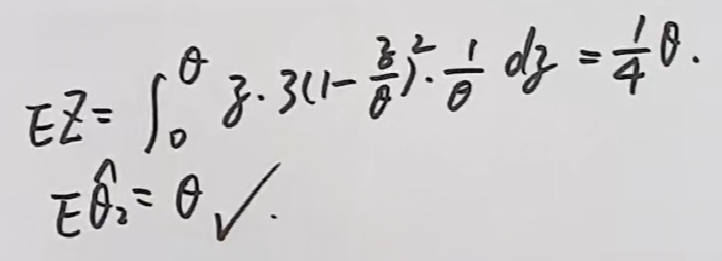 EZ = ∫₀^θ z · 3(1 - z/θ)² · 1/θ dz = 1/4 θ.
Eθ̂₂ = θ ✓.